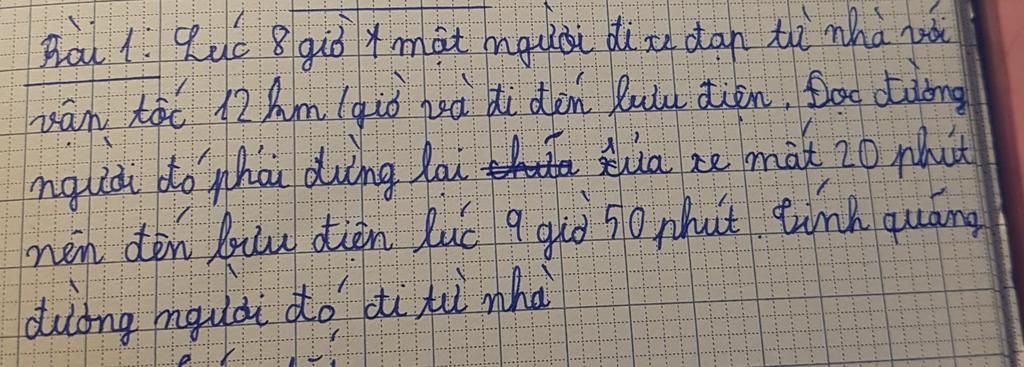 Bài 1: Lúc 8 giờ 1 một người đi xe đạp từ nhà với
vận tốc 12 km/giờ và đi đến bưu điện. Dọc đường
người đó phải dừng lại sửa xe mất 20 phút
nên đến bưu điện lúc 9 giờ 50 phút. Tính quãng
đường người đó đi từ nhà